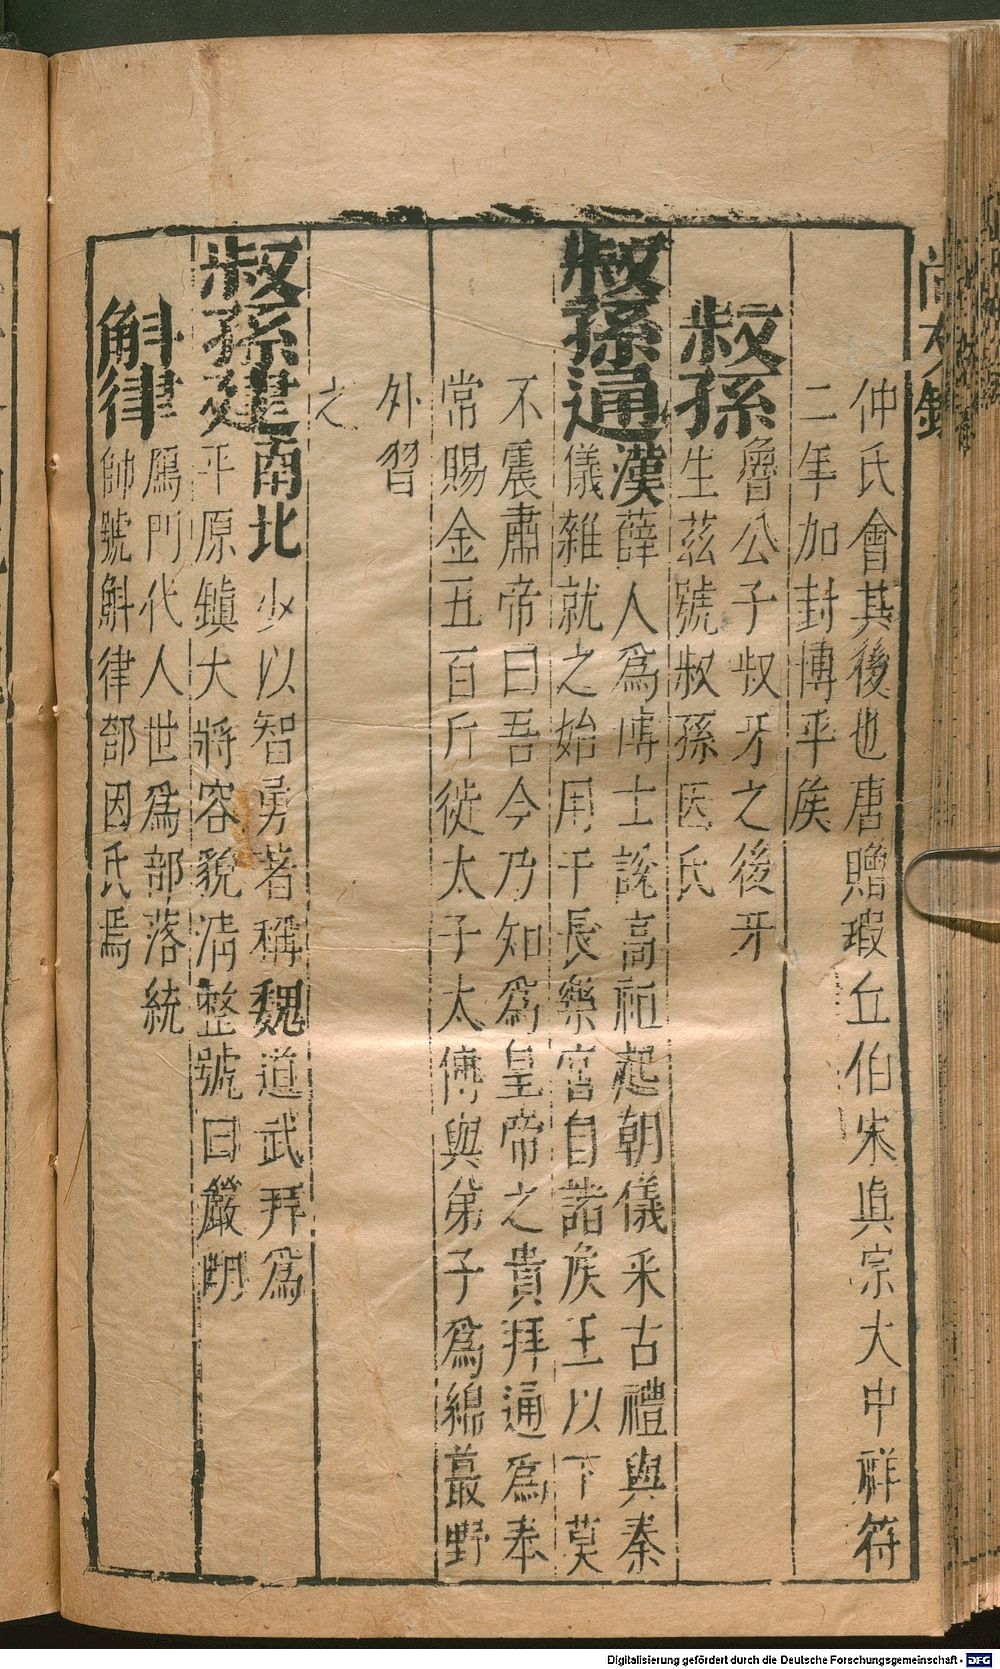 仲氏會其後也唐贈瑕丘伯宋眞宗大中祥符
二年加封博平矦
叔孫
魯公子叔牙之後牙
生茲號叔孫因氏
叔孫通
漢薛人爲博士說高祖起朝儀采古禮與秦
儀雜就之始用于長樂宮自諸矦王以下莫
不震肅帝曰吾今乃知爲皇帝之貴拜通爲奉
常賜金五百斤徙太子太傅與弟子爲綿蕞野
外習
之
叔孫建
南北少以智勇著稱魏道武拜爲
平原鎮大將容貌清整號曰嚴明
斛律
鴈門代人世爲部落統
帥號斛律部因氏焉
Digitalisierung gefördert durch die Deutsche Forschungsgemeinschaft - DFG